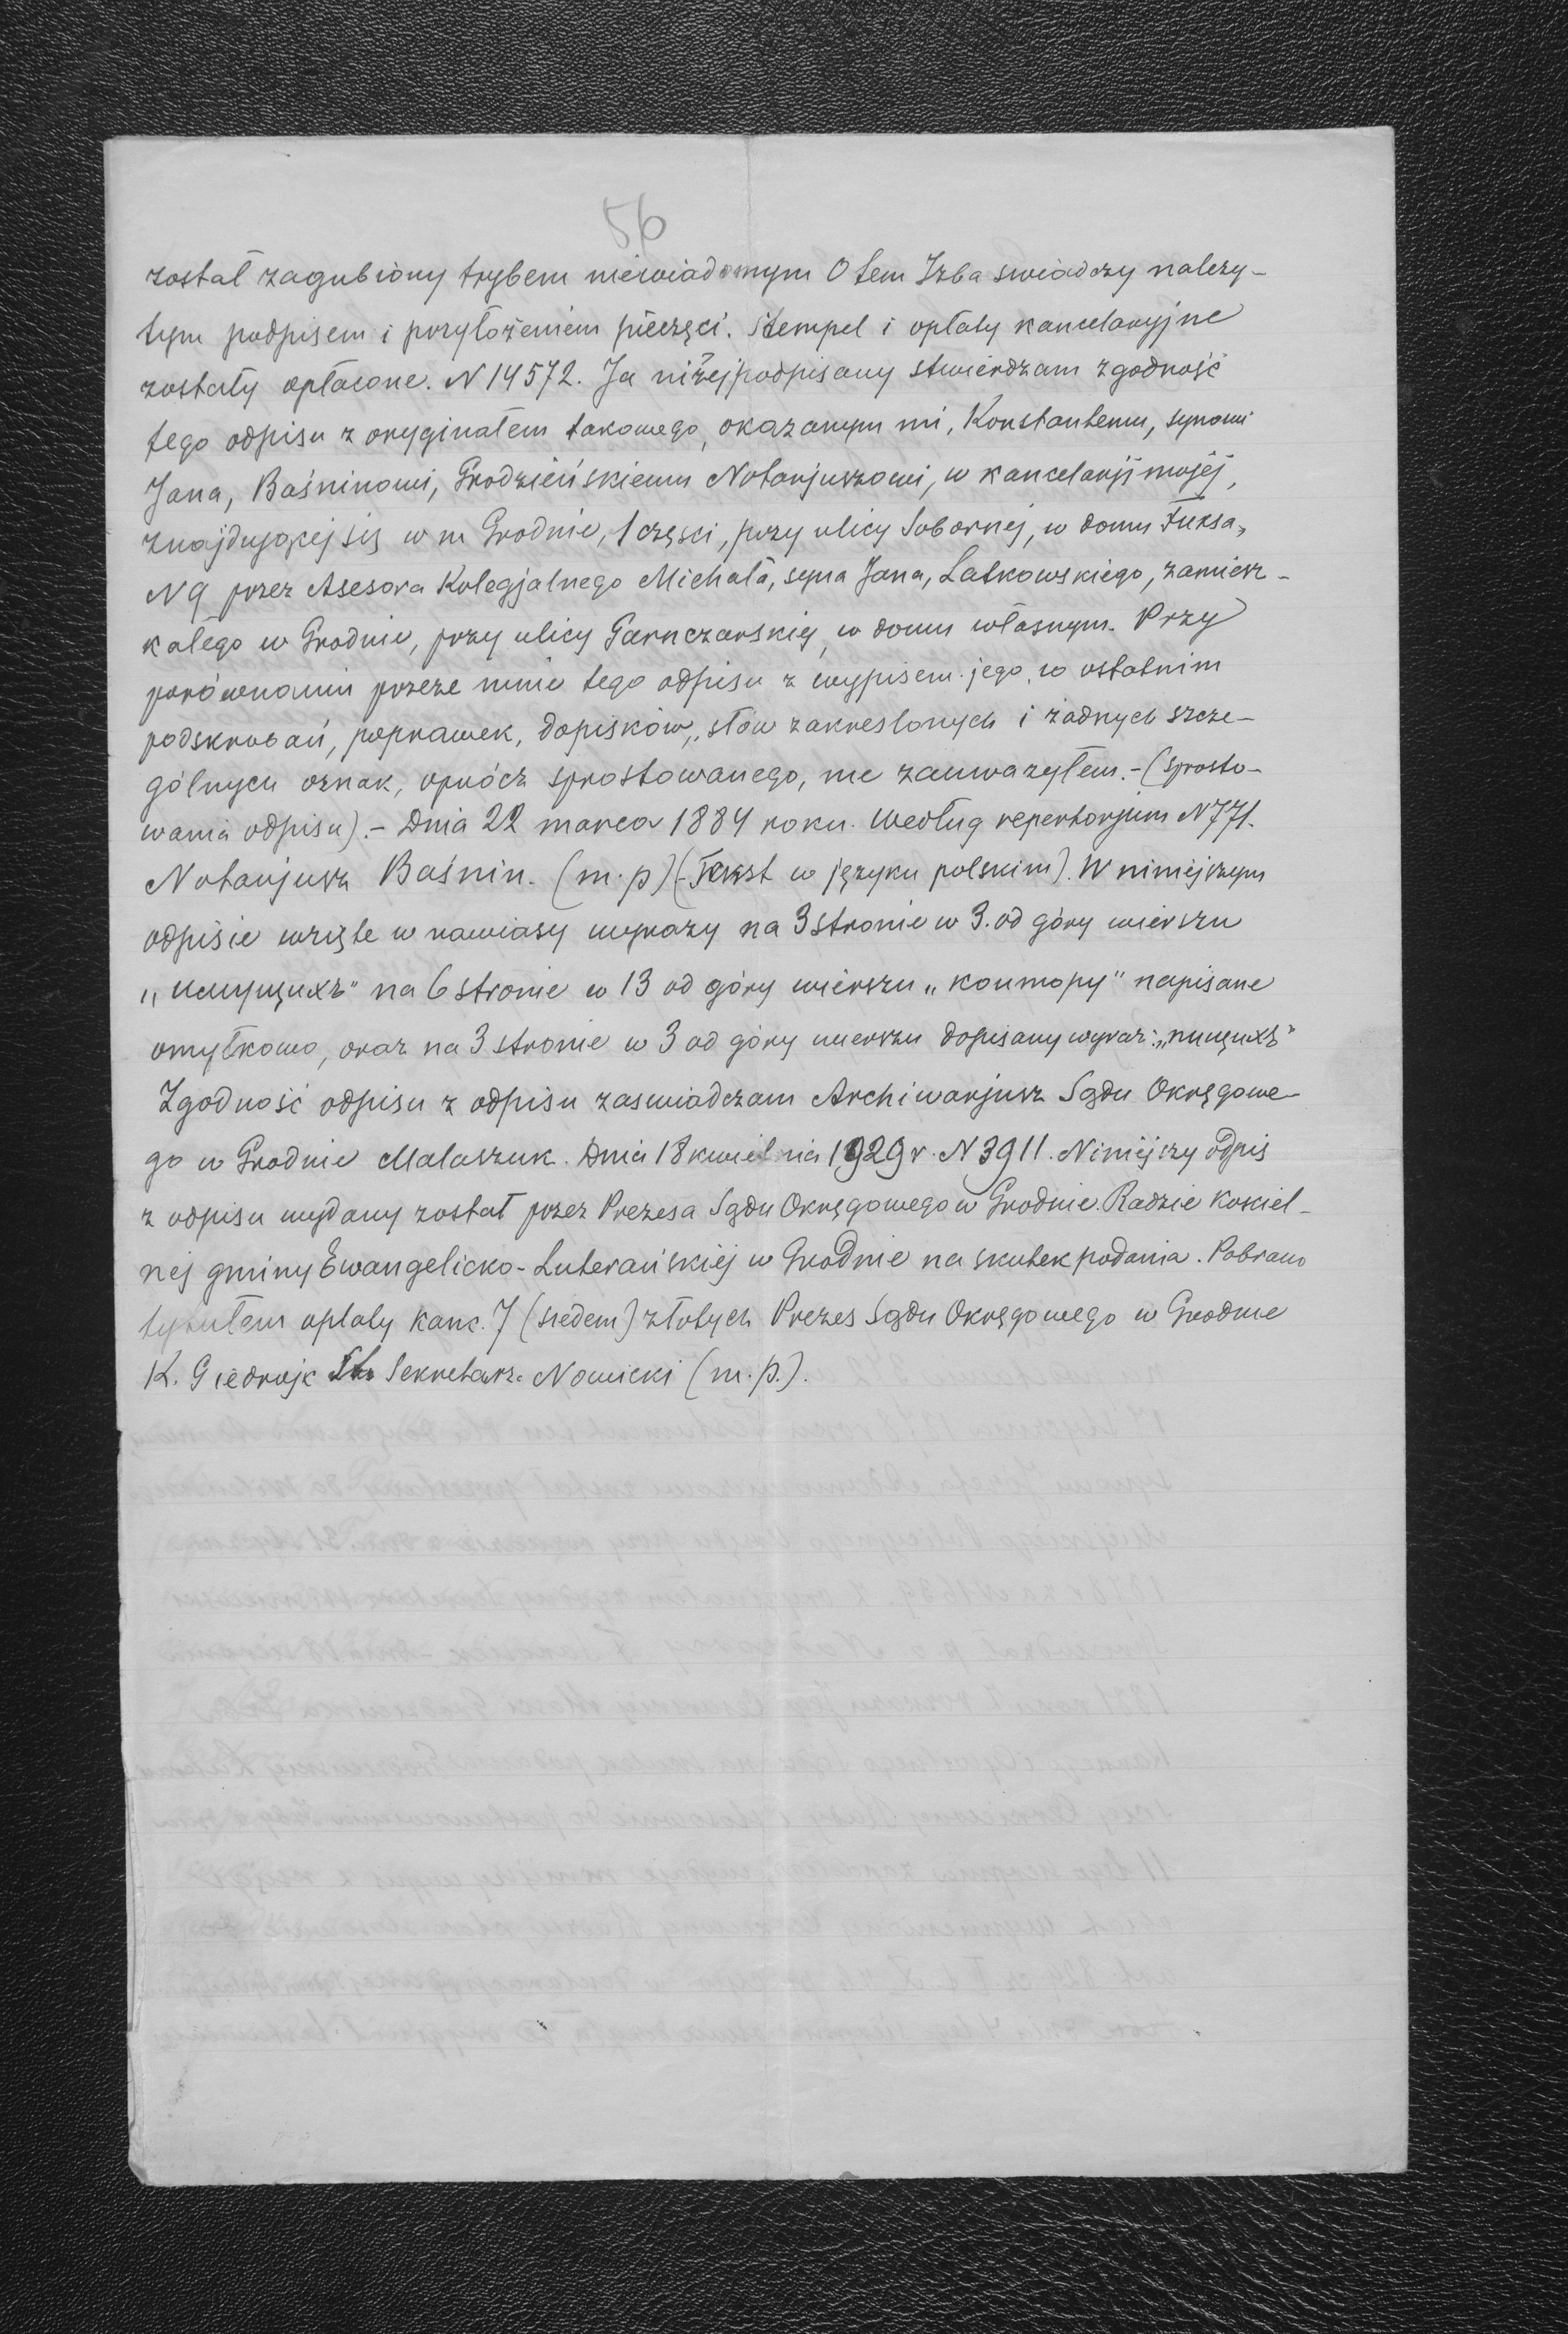 56
został zagubiony trybem niewiadomym O tem Izba swiadczy należy-
tym podpisem i przyłożeniem pieczęci. Stempel i opłaty kancelaryjne
zostały opłacone. N 14572. Ja niżej podpisany stwierdzam zgodność
tego odpisu z oryginałem takowego, okazanym mi, Konstantemu, synowi
Jana, Baśninowi, Grodzieńskiemu Notarjuszowi, w kancelarji mojej,
znajdującej się w m Grodnie, 1 części, przy ulicy Sobornej, w domu Fuksa,
N 9 przez Asesora Kolegjalnego Michała, syna Jana, Latkowskiego, zamiesz-
kałego w Grodnie, przy ulicy Garnczarskiej, w domu własnym. Przy
porównaniu przeze mnie tego odpisu z wypisem jego, w ostatnim
podskrobań, poprawek, dopisków, słów zakreslonych i żadnych szcze-
gólnych oznak, oprócz sprostowanego, nie zauważyłem.-(sprosto-
wania odpisu).- Dnia 22 marca 1884 roku. Według repertorjum N 771.
Notarjusz Baśnin. (m.p)(-Tekst w języku polskim). W niniejszym
odpisie wzięte w nawiasy wyrazy na 3 stronie w 3. od góry wierszu
„имущихъ" na 6 stronie w 13 od góry wierszu „конторы" napisane
omyłkowo, oraz na 3 stronie w 3 od góry wierszu dopisany wyraz: „пищихъ"
Zgodność odpisu z odpisu zaswiadczam Archiwarjusz Sądu Okręgowe-
go w Grodnie Malaszuk. Dnia 18 kwietnia 1929 r. N 3911. Niniejszy odpis
z odpisu wydany został przez Prezesa Sądu Okręgowego w Grodnie. Radzie Kościel-
nej gminy Ewangelicko-Luterańskiej w Grodnie na skutek podania. Pobrano
tytułem opłaty kanc. 7 (siedem) złotych Prezes Sądu Okręgowego w Grodnie
K. Giedrojc St. Sekretarz. Nowicki (m.p.).